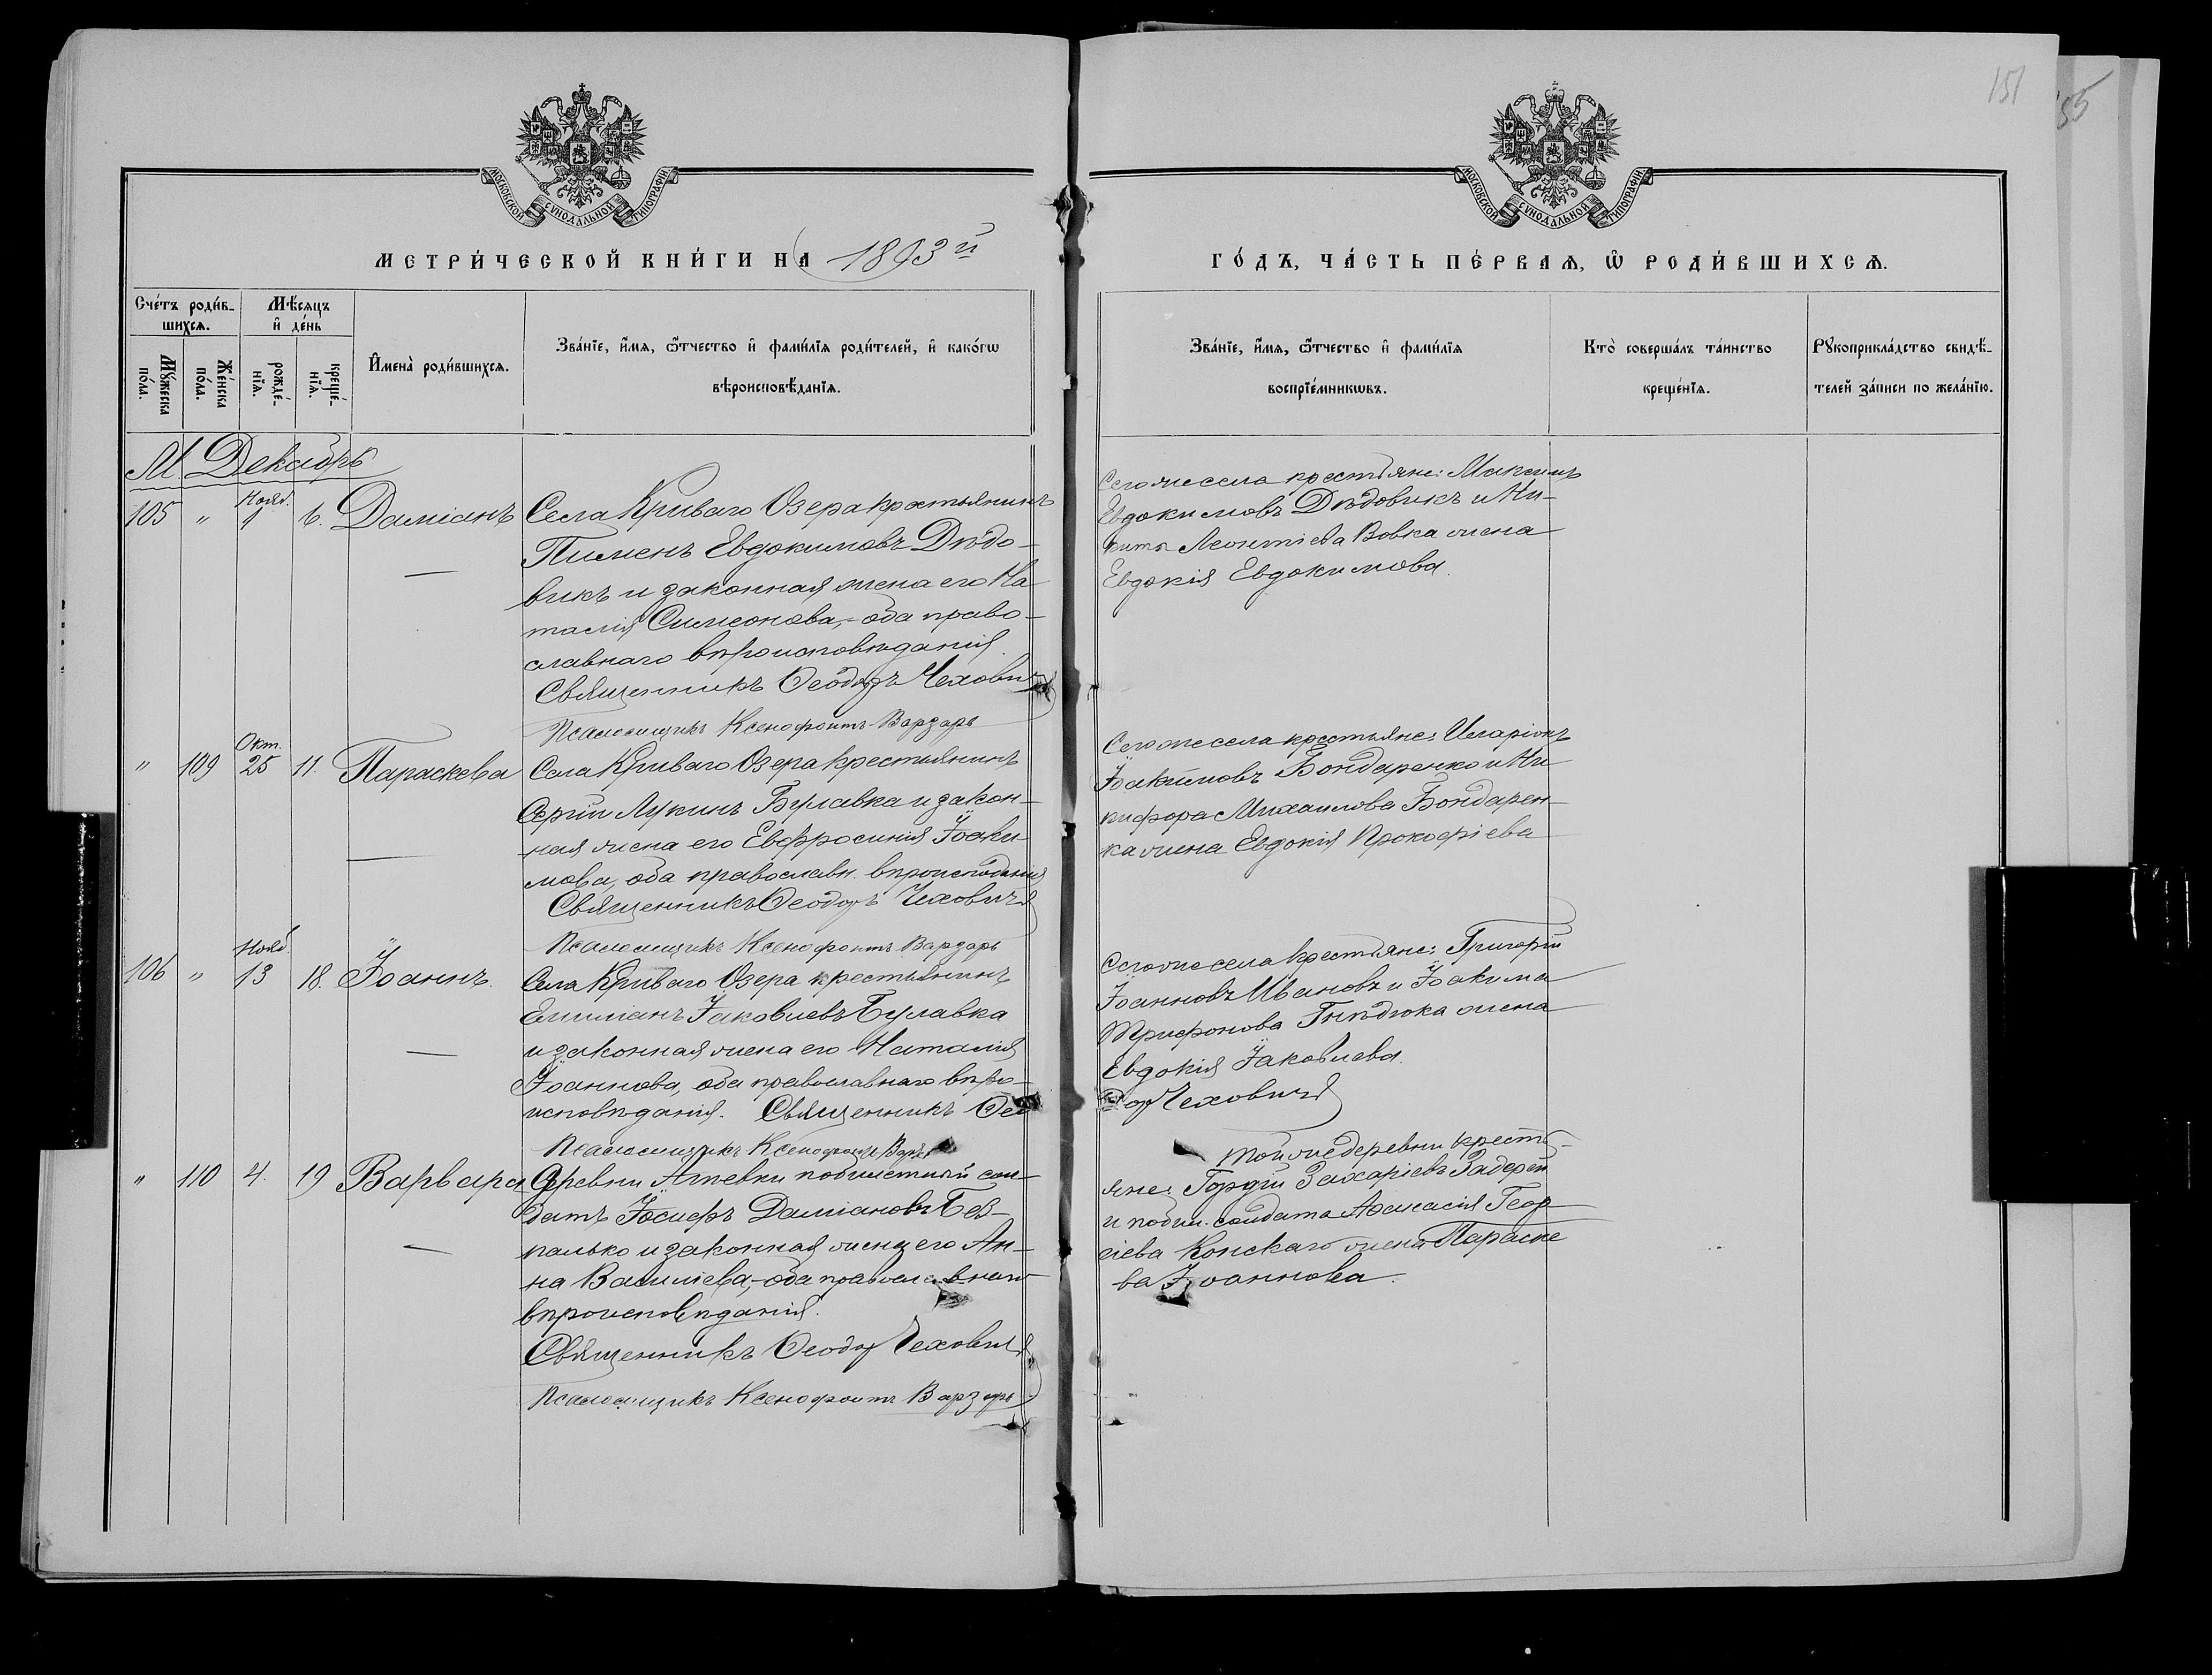 151
155
МОСКОВСКОЙ СѴНОДАЛЬНОЙ ТИПОГРАФІИ
МОСКОВСКОЙ СѴНОДАЛЬНОЙ ТИПОГРАФІИ
МЕТРИ́ЧЕСКОЙ КНИ́ГИ НА 1893 й
ГО́ДЪ, ЧА́СТЬ ПЕ́РВАѦ, Ѡ҆ РОДИ́ВШИХСѦ.
Сче́тъ роди́в-
шихсѧ.
Мѣ́сѧцъ
и҆ де́нь
Мꙋ́жеска
по́ла.
Же́нска
по́ла.
рожде́-
нїѧ.
креще́-
нїѧ.
И҆мена̀ роди́вшихсѧ.
Зва́нїе, и҆́мѧ, ѻ҆́тчество и҆ фами́лїѧ роди́телей, и҆ како́гѡ
вѣроисповѣ́данїѧ.
Зва́нїе, и҆́мѧ, ѻ҆́тчество и҆ фами́лїѧ
воспрїе́мникѡвъ.
Кто̀ соверша́лъ та́инство
креще́нїѧ.
Рꙋкоприкла́дство свидѣ́-
телей за́писи по жела́нїю.
М. Декабрь
105 " Нояб. 1 6. Даміанъ
Села Криваго Озера крестьянинъ
Пименъ Евдокимовъ Дѣдо-
викъ и законная жена его На
талія Симеонова,- оба право-
славнаго вѣроисповѣданія.
Священникъ Ѳеодоръ Чехович
Псаломщикъ Ксенофонтъ Варзарь
Сего же села крестьяне: Максимъ
Евдокимовъ Дѣдовикъ и Ни-
киты Леонтіева Вовка жена
Евдокія Евдокимова.
" 109 Окт. 25 11. Параскева
Села Криваго Озера крестьянинъ
Сергій Лукинъ Булавка и закон-
ная жена его Евфросинія Іоаки-
мова, оба православн. вѣроисповѣданія
Священникъ Ѳеодоръ Чеховичъ
Псаломщикъ Ксенофонтъ Варзарь
Сего же села крестьяне: Иларіонъ
Іоакимовъ Бондаренко и Ни
кифора Михаилова Бондарен-
ка жена Евдокія Прокофіева
106 " Нояб. 13 18. Іоаннъ.
Села Криваго Озера крестьянинъ
Емиліанъ Іаковлевъ Булавка
и законная жена его Наталія
Іоаннова, оба православнаго вѣро-
исповѣданія. Священникъ Ѳео
дор Чеховичъ
Псаломщикъ Ксенофонтъ Варз
Сего же села крестьяне: Григорій
Іоанновъ Ивановъ и Іоакима
Трифонова Гнѣдюка жена
Евдокія Іаковлева.
" 110 4. 19 Варвара
Деревни Атевки побилетный сол-
датъ Іосифъ Даміановъ Без-
палько и законная жена его Ан-
на Василіева,- оба православнаго
вѣроисповѣданія.
Священникъ Ѳеодор Чехович
Псаломщикъ Ксенофонтъ Варзарь
Той же деревни кресть-
яне: Гордій Захаріевъ Задерей
и побил. солдата Аѳанасія Геор
гіева Конскаго жена Параске
ва Іоаннова.